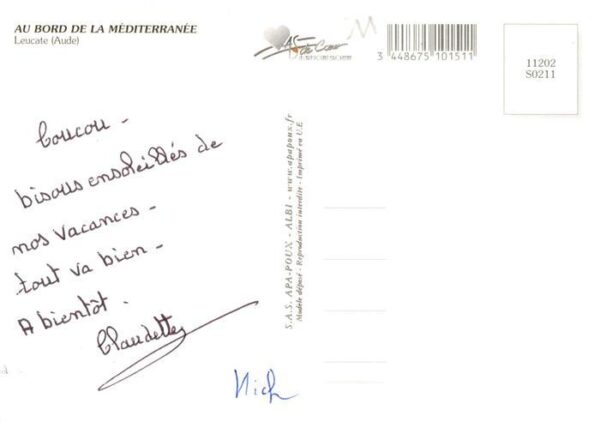 AU BORD DE LA MÉDITERRANÉE
Leucate (Aude)
3 448675 101511
11202
S0211
Coucou -
bisous ensoleillés de
nos vacances -
tout va bien -
A bientôt.
Claudette
Mich
S.A.S. APA-POUX - ALBI - www.apapoux.fr
Modèle déposé - Reproduction interdite - Imprimé en U.E